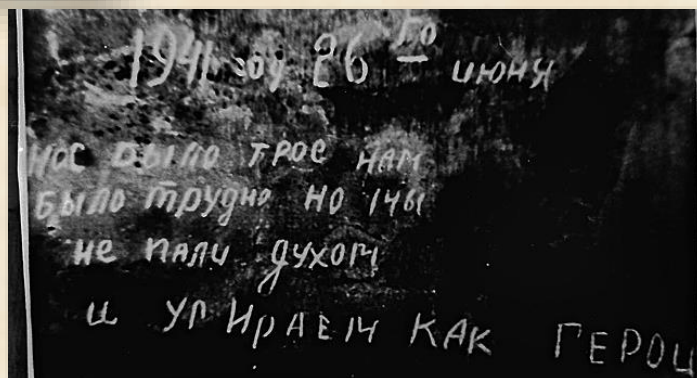 1941 год 26го июня
нос было трое нам
было трудно но мы
не пали духом
и умираем как герои